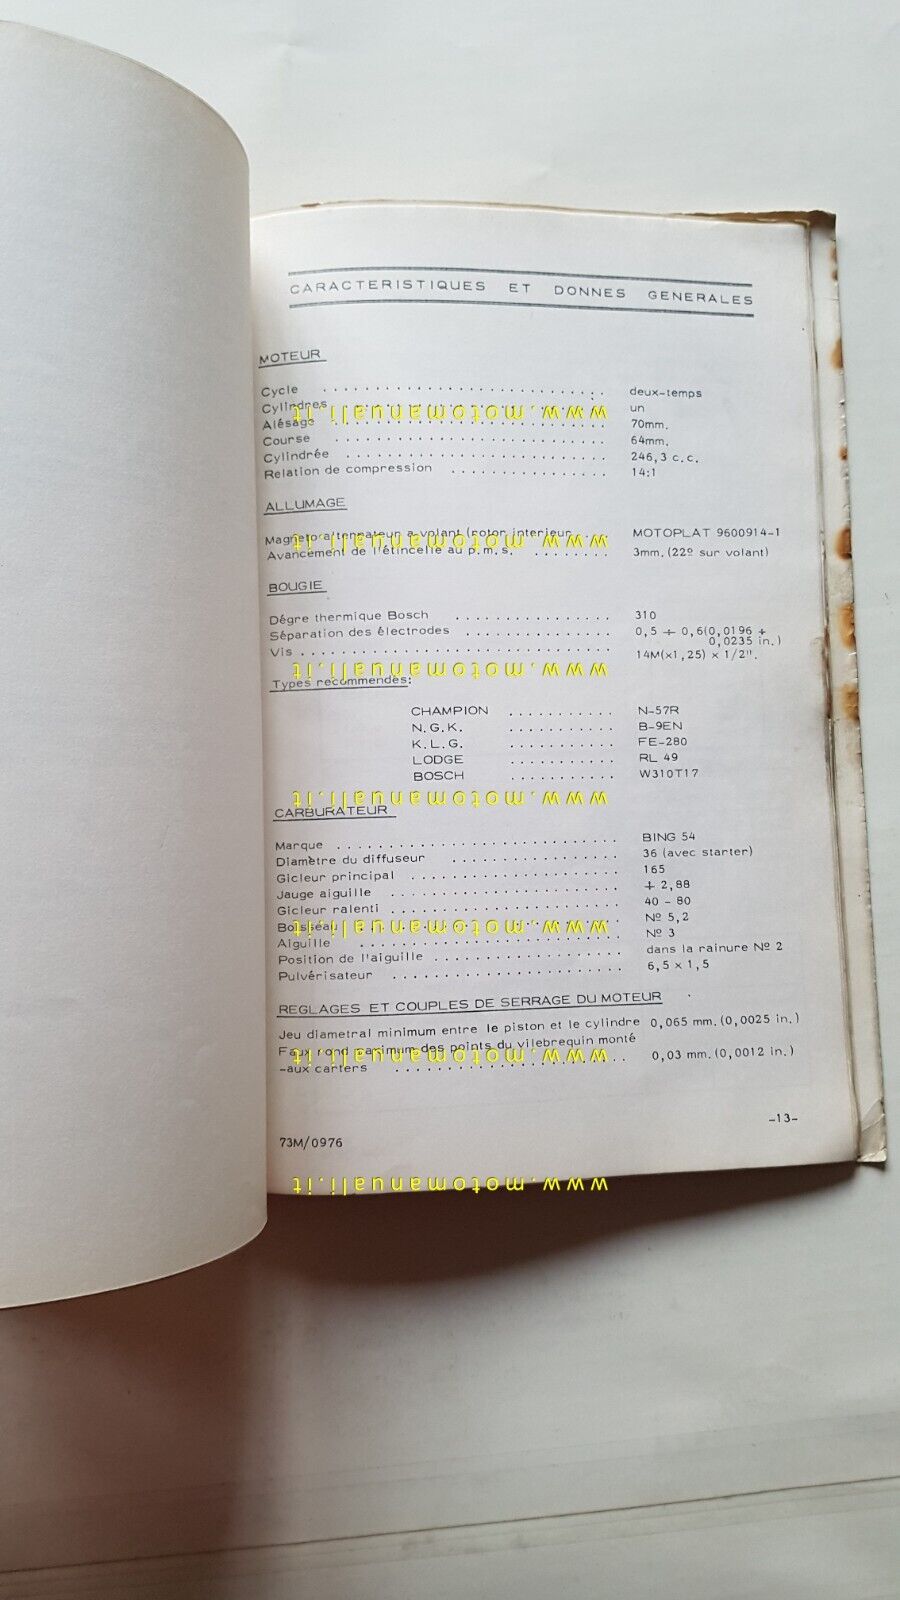 CARACTERISTIQUES ET DONNES GENERALES
MOTEUR
Cycle . . . . . . . . . . . . . . . . . . . . . . . deux-temps
Cylindres . . . . . . . . . . . . . . . . . . . . . un
www.motomanuali.it
Alésage . . . . . . . . . . . . . . . . . . . . . . 70mm.
Course . . . . . . . . . . . . . . . . . . . . . . 64mm.
Cylindrée . . . . . . . . . . . . . . . . . . . . . 246,3 c.c.
Relation de compression . . . . . . . . . . . . . 14:1
ALLUMAGE
a volant (rotor interieur . . . MOTOPLAT 9600914-1
www.motomanuali.it
Avancement de l'étincelle au p.m.s. . . . . . . . 3mm.(22º sur volant)
BOUGIE
Dégre thermique Bosch . . . . . . . . . . . . . 310
Séparation des électrodes . . . . . . . . . . . . 0,5 ÷ 0,6(0,0196 ÷
0,0235 in.)
Vis . . . . . . . . . . . . . . . . . . . . . . . . 14M(x1,25) x 1/2".
www.motomanuali.it
Types recommendés:
CHAMPION . . . . . . . . . . N-57R
N.G.K. . . . . . . . . . . B-9EN
K.L.G. . . . . . . . . . . FE-280
LODGE . . . . . . . . . . RL 49
BOSCH . . . . . . . . . . W310T17
www.motomanuali.it
CARBURATEUR
Marque . . . . . . . . . . . . . . . . . . . . . . BING 54
Diamètre du diffuseur . . . . . . . . . . . . . . 36 (avec starter)
Gicleur principal . . . . . . . . . . . . . . . . . 165
Jauge aiguille . . . . . . . . . . . . . . . . . . . ÷ 2,88
Gicleur ralenti . . . . . . . . . . . . . . . . . . 40 - 80
Boisseau . . . . . . . . . . . . . . . . . . . . . Nº 5,2
www.motomanuali.it
Aiguille . . . . . . . . . . . . . . . . . . . . . Nº 3
Position de l'aiguille . . . . . . . . . . . . . . . dans la rainure Nº 2
Pulvérisateur . . . . . . . . . . . . . . . . . . . 6,5 x 1,5
REGLAGES ET COUPLES DE SERRAGE DU MOTEUR
Jeu diametral minimum entre le piston et le cylindre 0,065 mm.(0,0025 in.)
Faux rond maximum des points du vilebrequin monté
www.motomanuali.it
-aux carters . . . . . . . . . . . . . . . . . . . 0,03 mm.(0,0012 in.)
-13-
73M/0976
www.motomanuali.it